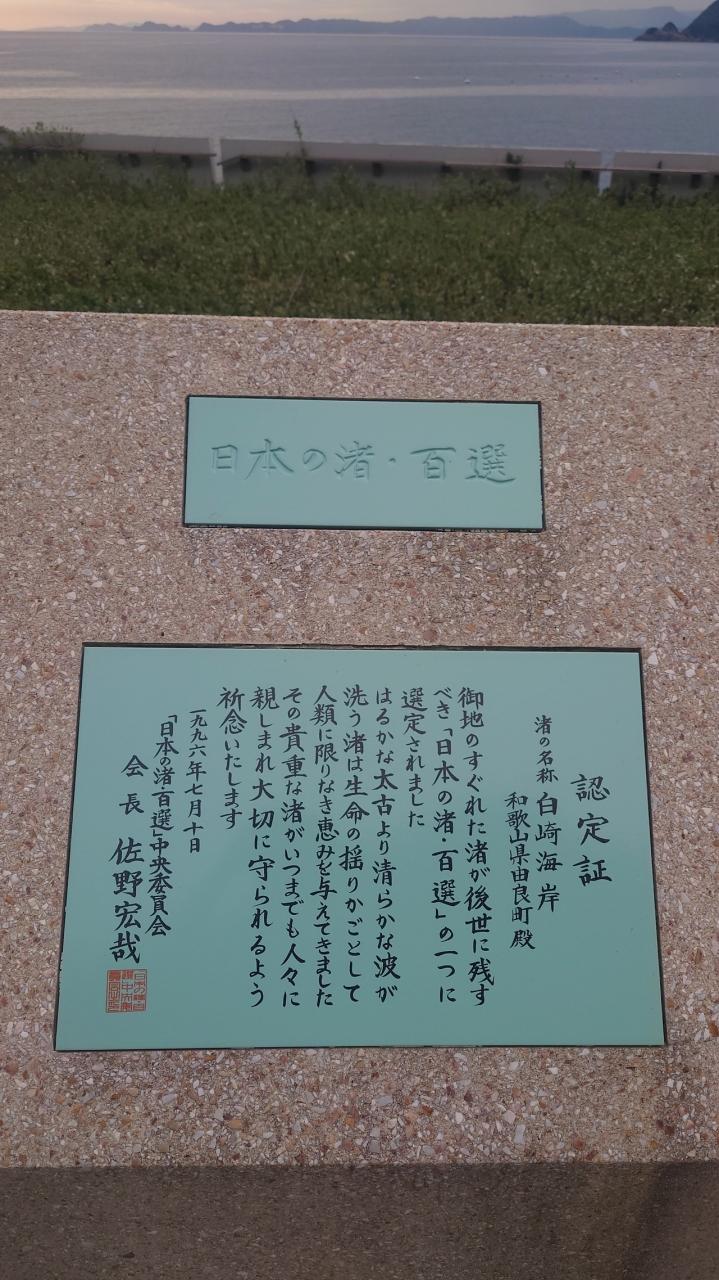 日本の渚・百選
認定証
渚の名称 白崎海岸
和歌山県由良町殿
御地のすぐれた渚が後世に残す
べき「日本の渚・百選」の一つに
選定されました
はるかな太古より清らかな波が
洗う渚は生命の揺りかごとして
人類に限りなき恵みを与えてきました
その貴重な渚がいつまでも人々に
親しまれ大切に守られるよう
祈念いたします
一九九六年七月十日
「日本の渚・百選」中央委員会
会長 佐野宏哉